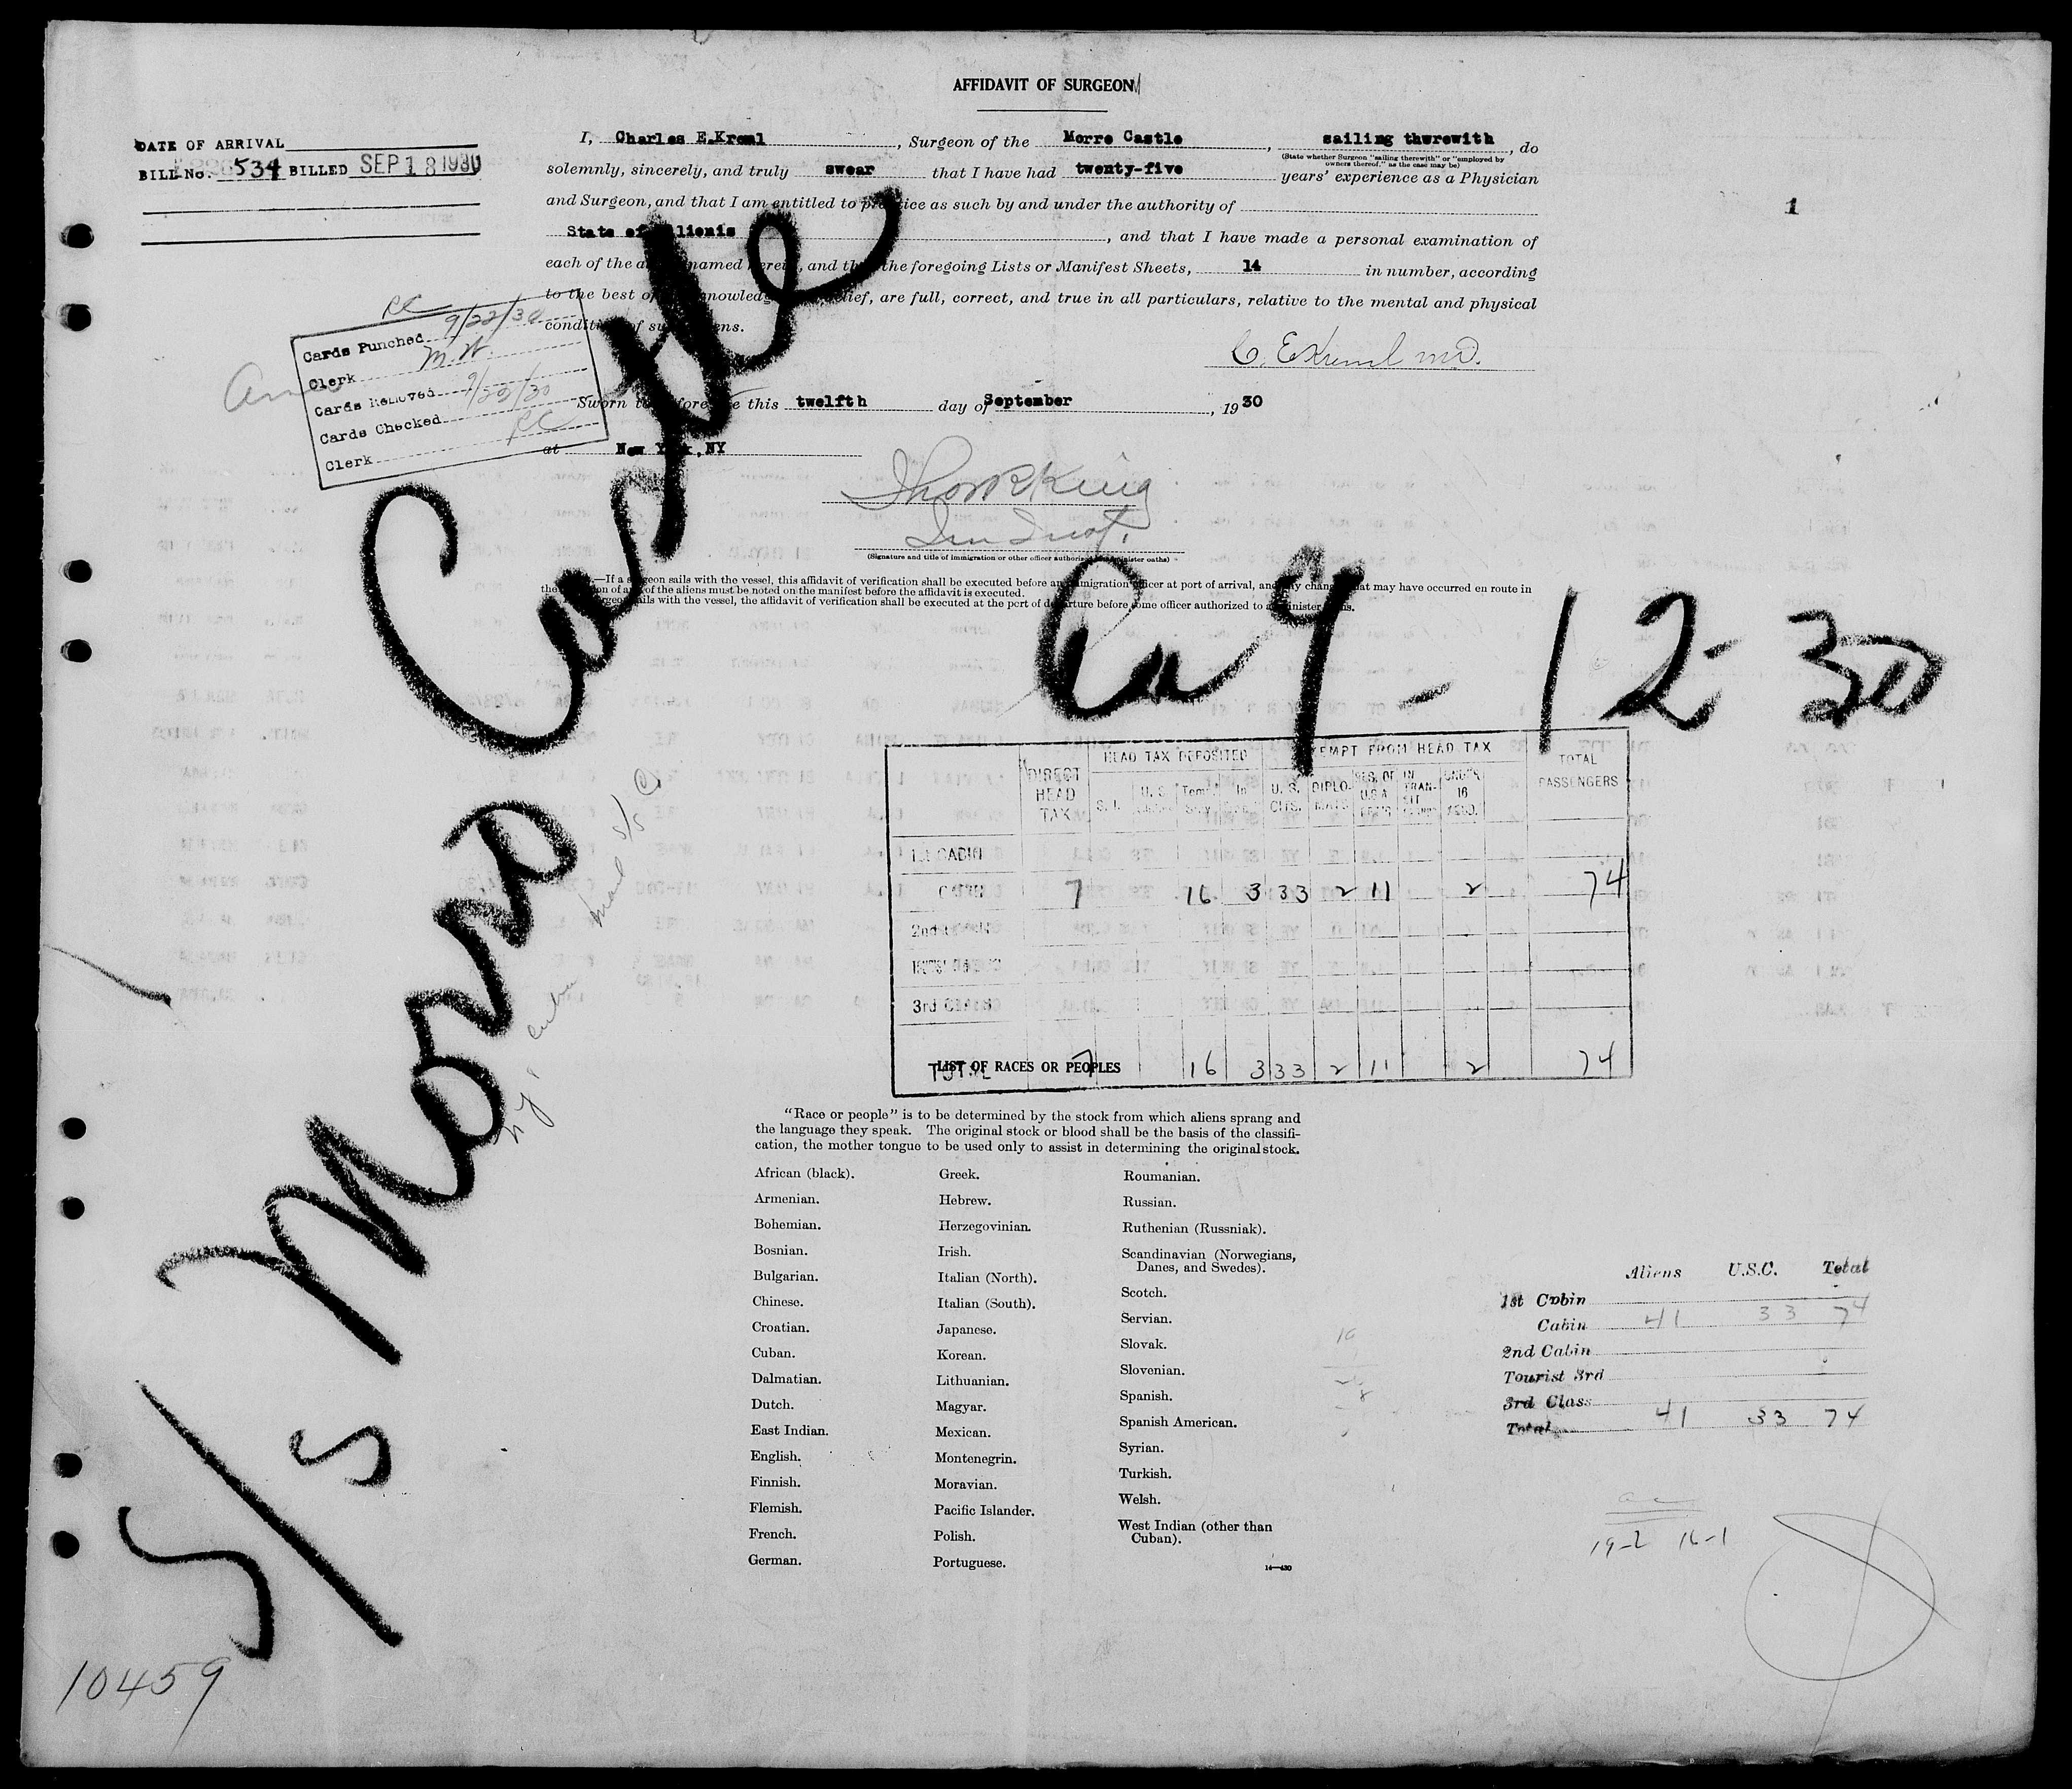 AFFIDAVIT OF SURGEON
DATE OF ARRIVAL
BILL No. 534 BILLED SEP 18 1930
I, Charles E.Kreml, Surgeon of the Morro Castle, sailing therewith, do
(State whether Surgeon "sailing therewith" or "employed by
owners thereof," as the case may be)
solemnly, sincerely, and truly swear that I have had twenty-five years' experience as a Physician
and Surgeon, and that I am entitled to practice as such by and under the authority of
State of Illionis, and that I have made a personal examination of
each of the aliens named herein, and that the foregoing Lists or Manifest Sheets, 14 in number, according
to the best of my knowledge and belief, are full, correct, and true in all particulars, relative to the mental and physical
condition of such aliens.
1
C. E Kreml MD.
RC
Cards Punched 9/22/30
Clerk M.W.
Cards Removed 9/22/30
Cards Checked
Clerk RC
Sworn to before me this twelfth day of September, 1930
at New York, NY
Thos R King
(Signature and title of immigration or other officer authorized to administer oaths)
NOTE.—If a surgeon sails with the vessel, this affidavit of verification shall be executed before an immigration officer at port of arrival, and any changes that may have occurred en route in
the condition of any of the aliens must be noted on the manifest before the affidavit is executed.
surgeon sails with the vessel, the affidavit of verification shall be executed at the port of departure before some officer authorized to administer oaths.
S/S Morro Castle
9-12-30
N.Y. & Cuba Mail S/S Co
DIRECT HEAD TAX HEAD TAX DEPOSITED EXEMPT FROM HEAD TAX TOTAL PASSENGERS
S. I. U. S. U. S. CITS. DIPLOMATS RES. OF U.S.A. IN TRANSIT UNDER 16
1st CABIN
CABIN 7 16 3 33 2 11 2 74
2nd CABIN
3rd CLASS
TOTAL 7 16 3 33 2 11 2 74
LIST OF RACES OR PEOPLES
"Race or people" is to be determined by the stock from which aliens sprang and
the language they speak. The original stock or blood shall be the basis of the classifi-
cation, the mother tongue to be used only to assist in determining the original stock.
African (black).
Armenian.
Bohemian.
Bosnian.
Bulgarian.
Chinese.
Croatian.
Cuban.
Dalmatian.
Dutch.
East Indian.
English.
Finnish.
Flemish.
French.
German.
Greek.
Hebrew.
Herzegovinian.
Irish.
Italian (North).
Italian (South).
Japanese.
Korean.
Lithuanian.
Magyar.
Mexican.
Montenegrin.
Moravian.
Pacific Islander.
Polish.
Portuguese.
Roumanian.
Russian.
Ruthenian (Russniak).
Scandinavian (Norwegians,
Danes, and Swedes).
Scotch.
Servian.
Slovak.
Slovenian.
Spanish.
Spanish American.
Syrian.
Turkish.
Welsh.
West Indian (other than
Cuban).
Aliens U.S.C. Total
1st Cabin
Cabin 41 33 74
2nd Cabin
Tourist 3rd
3rd Class
Total 41 33 74
19-2 16-1
10459